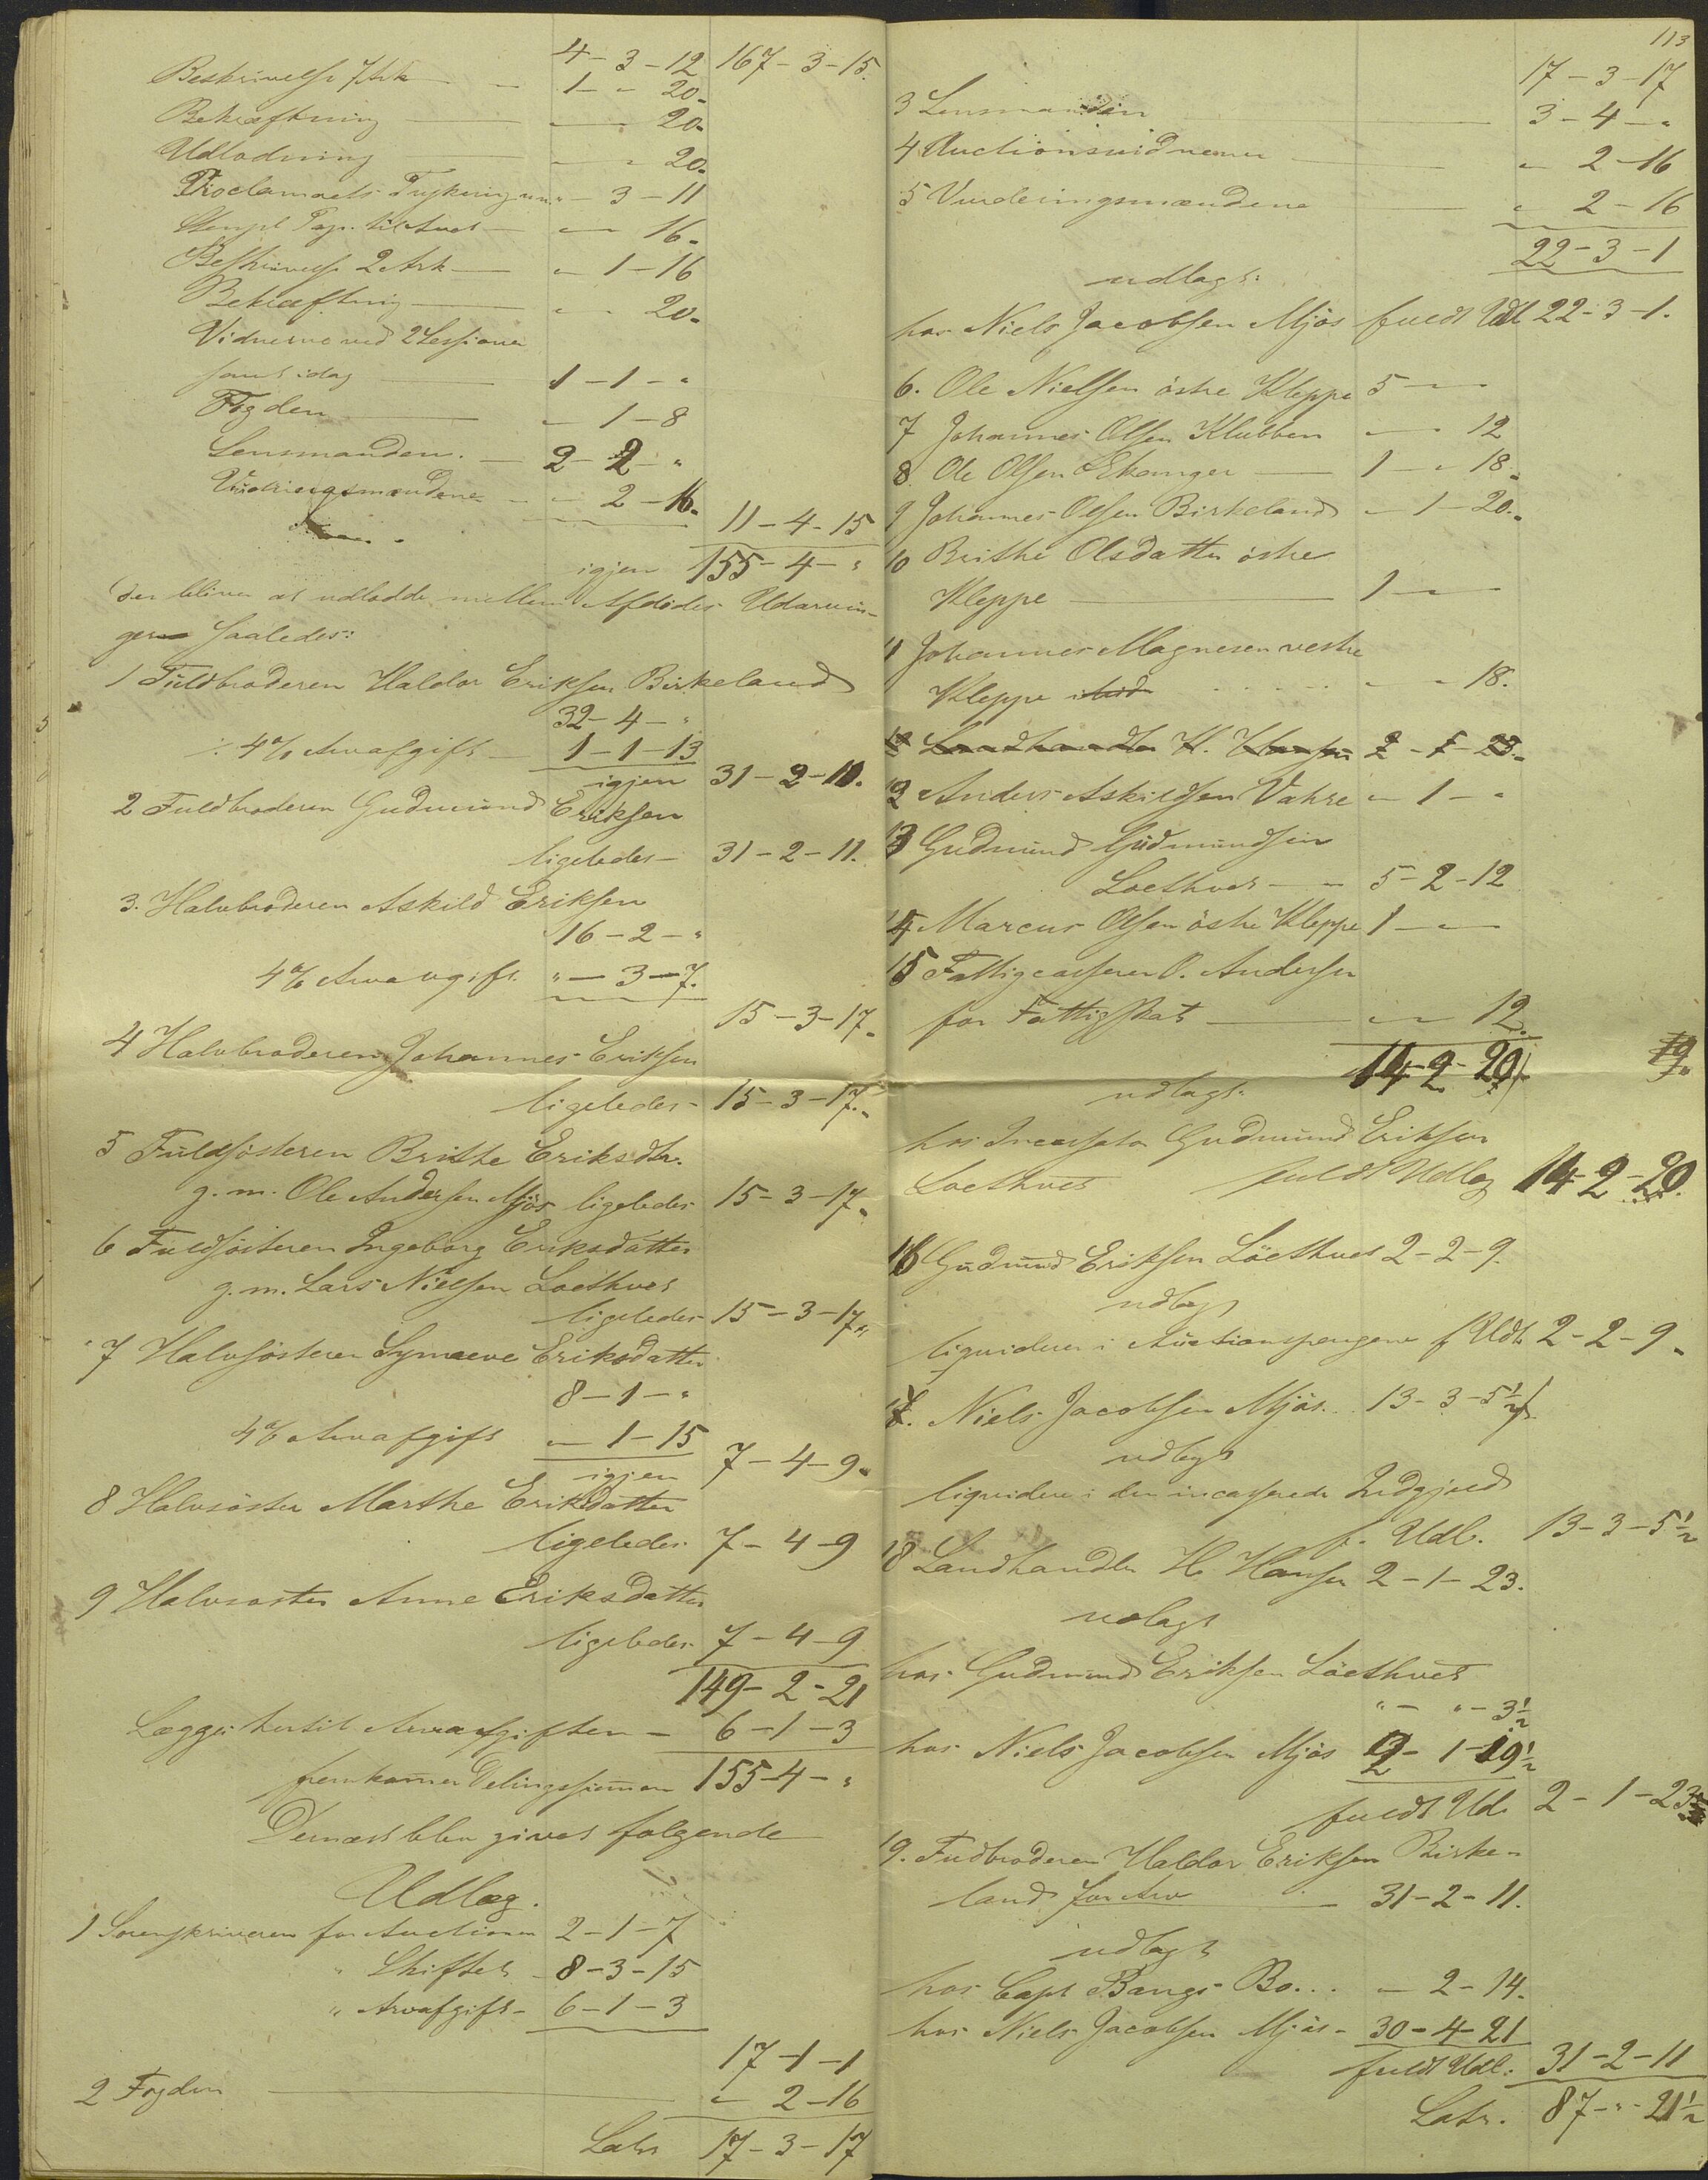 4 - 3 - 12 167 - 3 - 15.
Beskrivelse 7 Ark — 1 - „ 20„
Bekræftning — „ — 20„
Udlodning — „ — 20„
Proclamaets Trykning m.m. „ - 3 - 11
Stempl. Pap. til Amt — „ — 16„
Beskrivelse 2 Ark — „ - 1 - 16
Bekræftning — „ - 20„
Vidnerne ved 2 Sessioner
samt idag — 1 - 1 - „
Fogden — „ - 1 - 8
Lensmanden. — 2 - 2 - „
Vurderingsmændene — „ - 2 - 16„
11 - 4 - 15
igjen 155 - 4 - „
der bliver at udlodde mellem Afdødes Udarvin-
ger saaledes:
1 Fuldbroderen Haldor Eriksen Birkeland
32 - 4 - „
÷ 4 % Arvafgift — 1 - 1 - 13
igjen 31 - 2 - 11.
2 Fuldbroderen Gudmund Eriksen
ligeledes — 31 - 2 - 11.
3. Halvbroderen Askild Eriksen
16 - 2 - „
4 % Arveavgift. „ — 3 — 7.
15 - 3 - 17„
4 Halvbroderen Johannes Eriksen
ligeledes - 15 - 3 - 17„
5 Fuldsösteren Brithe Eriksdtr.
g. m. Ole Andersen Mjös ligeledes 15 - 3 - 17„
6 Fuldsösteren Ingeborg Eriksdatter
g. m. Lars Nielsen Loethvet
ligeledes 15 - 3 - 17„
7 Halvsösteren Synneve Eriksdatter
8 - 1 - „
4 % Arvafgift „ - 1 - 15
igjen 7 - 4 - 9„
8 Halvsöster Marthe Eriksdatter
ligeledes 7 - 4 - 9
9 Halvsöster Anne Eriksdatter
ligeledes 7 - 4 - 9
149 - 2 - 21
Lægges hertil Arveafgiften — 6 - 1 - 3
fremkommer Delingssummen 155 - 4 - „
Dernæst blev givet følgende
Udlæg.
1 Sorenskriveren for Auctionen 2 - 1 - 7
„ Skiftet — 8 - 3 - 15
„ Arvafgift — 6 - 1 - 3
17 - 1 - 1
2 Fogden — „ 2 - 16
Latr 17 - 3 - 17
113
17 - 3 - 17
3 Lensmanden — 3 - 4 - „
4 Auctionsvidnerne — „ 2 - 16
5 Vurderingsmændene — „ 2 - 16
22 - 3 - 1
udlagt:
hos Niels Jacobsen Mjös fuldt Udl 22 - 3 - 1.
6. Ole Nielsen östre Kleppe 5 — „ —
7 Johannes Olsen Klubben — „ 12
8. Ole Olsen Ekanger — 1 - „ 18„
9 Johannes Olsen Birkeland „ - 1 - 20„
10 Brithe Olsdatter östre
Kleppe — 1 — „ —
11 Johannes Magnesen vestre
Kleppe „ - „ 18.
12 Landhandler H. Hansen 2 - 1 - 23„
12 Anders Askildsen Vahre „ 1 - „
13 Gudmund Gudmundsen
Loethvet — „ 5 - 2 - 12
14 Marcus Olsen östre Kleppe 1 — „ —
15 Fattigcasserer O. Andersen
for Fattigskat — „ — 12.
14 - 2 - 20
udlagt.
hos Incassator Gudmund Eriksen
Loethvet fuldt Udlæg 14 - 2 - 20.
16 Gudmund Eriksen Löethvet 2 - 2 - 9.
udlagt
liqviderer i Auctionspengene f Udl. 2 - 2 - 9„
17. Niels Jacobsen Mjös. 13 - 3 - 5½
udlagt
liqviderer i den incasserede Indgjeld
f. Udl. 13 - 3 - 5½
18 Landhandler H. Hansen 2 - 1 - 23.
udlagt
hos Gudmund Eriksen Löethvet
„ - „ - 3½
hos Niels Jacobsen Mjös 2 - 1 - 19½
fuldt Udl. 2 - 1 - 23
19. Fuldbroderen Haldor Eriksen Birke-
land for Arv — 31 - 2 - 11.
udlagt
hos Capt Bangs Bo... — 2 - 14.
hos Niels Jacobsen Mjös - 30 - 4 - 21
fuldt Udl: 31 - 2 - 11
Latr. 87 - „ - 21½